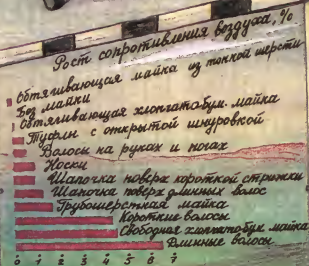 Рост сопротивления воздуха, %
Обтягивающая майка из тонкой шерсти
Без майки
Обтягивающая хлопчатобум. майка
Туфли с открытой шнуровкой
Волосы на руках и ногах
Носки
Шапочка поверх короткой стрижки
Шапочка поверх длинных волос
Грубошерстная майка
Короткие волосы
Свободная хлопчатобум. майка
Длинные волосы
0 1 2 3 4 5 6 7